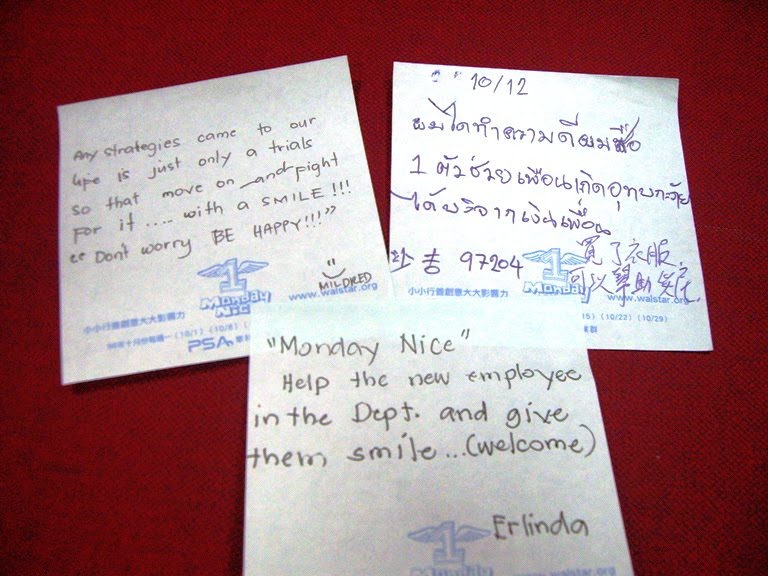 Any strategies came to our
life is just only a trials
so that move on and fight
For it .... with a SMILE!!!
"Don't worry BE HAPPY!!!"
MILDRED
1
Monday
Nice
www.walstar.org
小小行善創意大大影響力
(10/1) (10/8)
PSA
10/12
ผมได้ทำความดีผมซื้อ
1 ตัวช่วยเพื่อนเกิดอุทกภัย
ได้บริจาคเงินเพื่อ
吉 97204
買了衣服
可以幫助
1
Monday
www.walstar.org
小小行善創意大大影響力
(10/22) (10/29)
"Monday Nice"
Help the new employee
in the Dept. and give
them smile...(welcome)
Erlinda
1
Monday
www.walstar.org